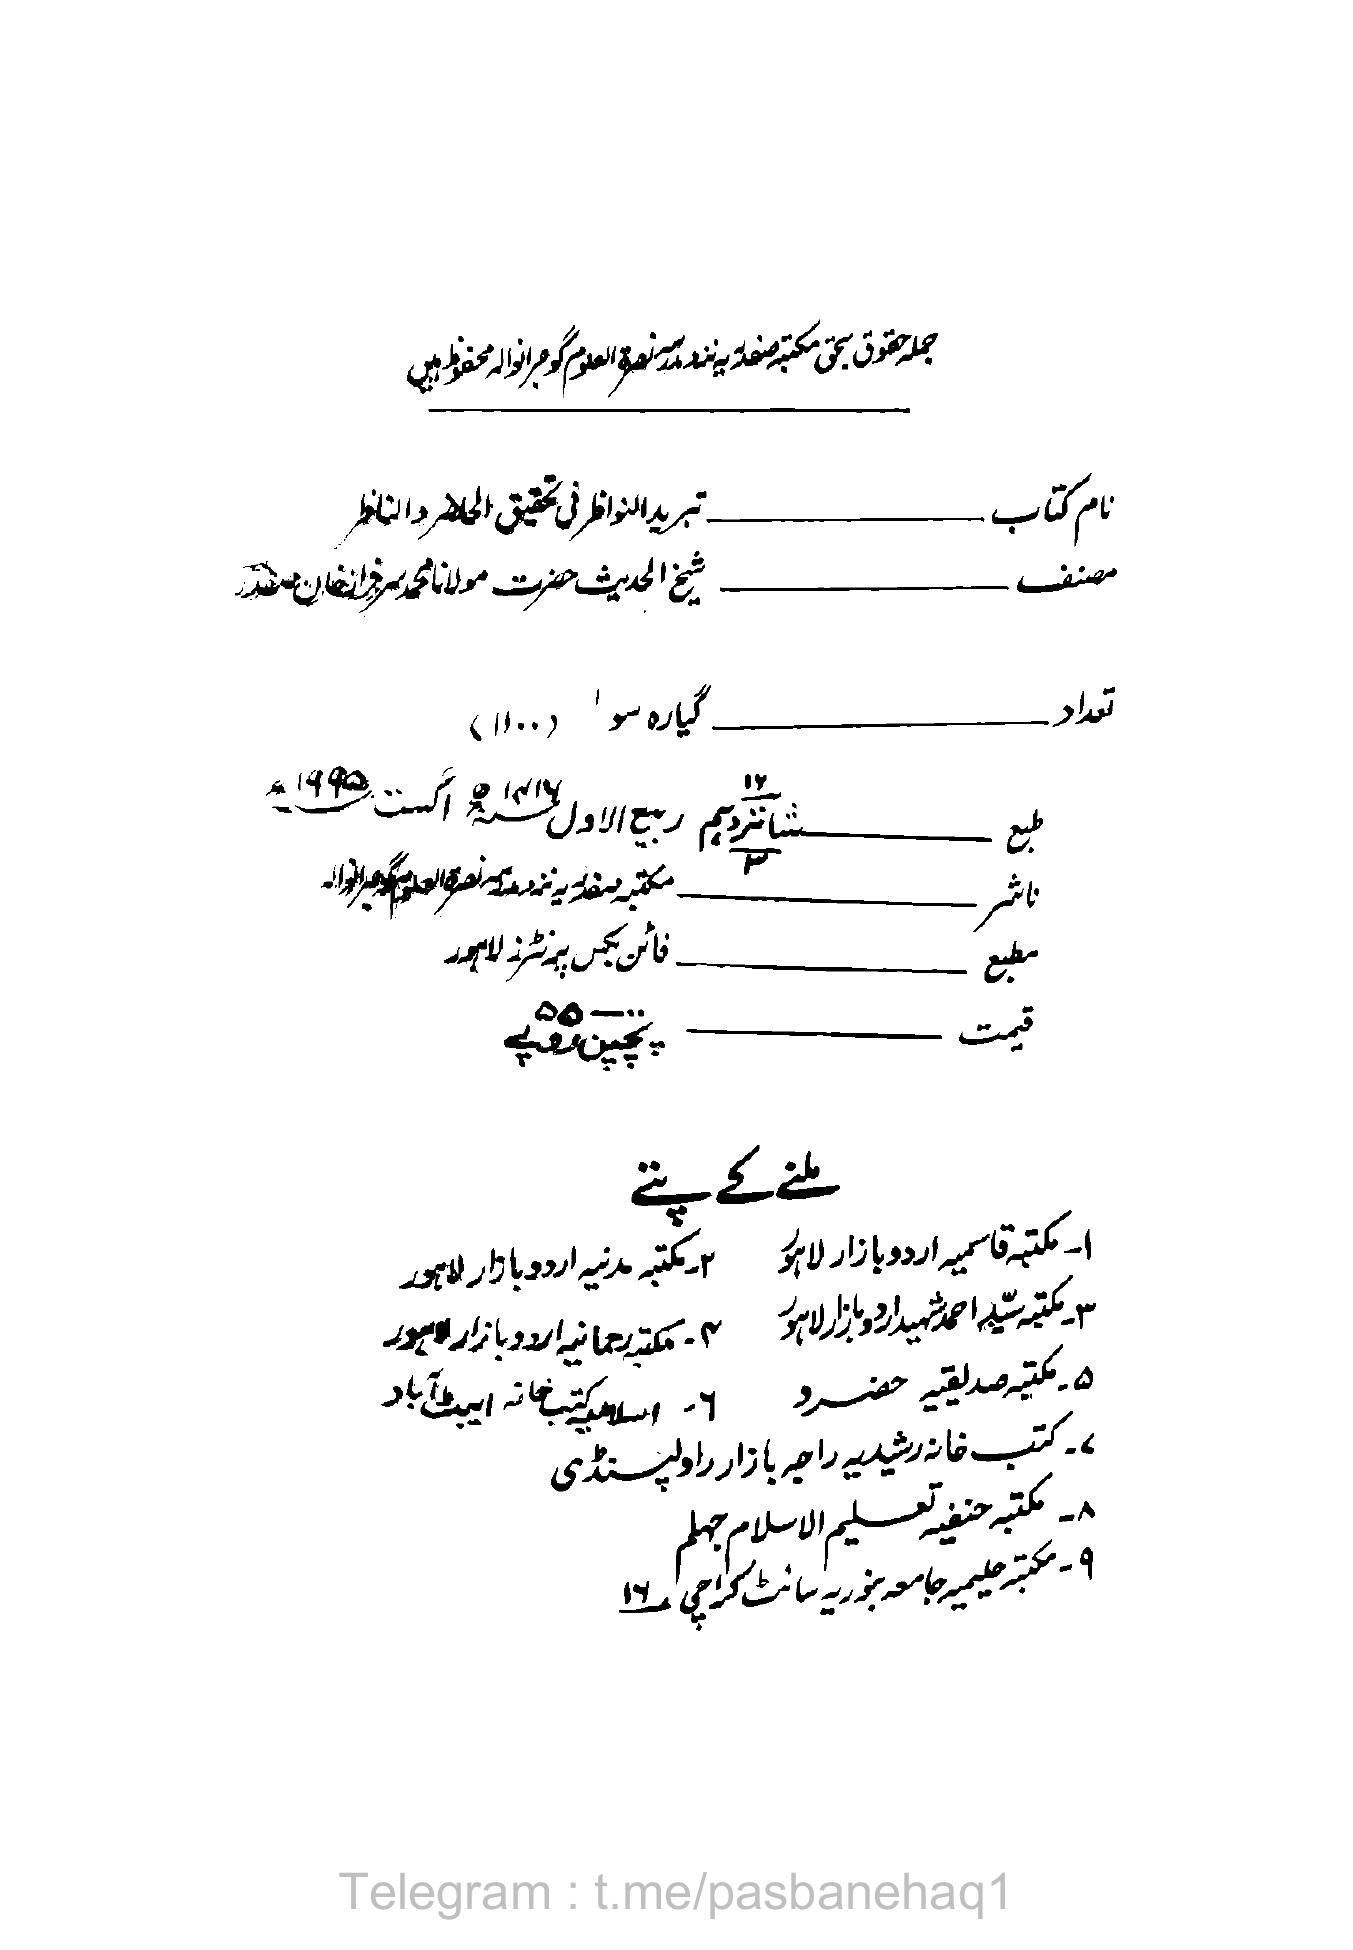 جملہ حقوق بحق مکتبہ صفدریہ نزد مدرسہ نصرۃ العلوم گوجرانوالہ محفوظ ہیں
نام کتاب ـــــ تبرید النواظر فی تحقیق الحاضر والناظر
مصنف ـــــ شیخ الحدیث حضرت مولانا محمد سرفراز خان صفدر
تعداد ـــــ گیارہ سو (۱۱۰۰)
طبع ـــــ ۱۶ شانزدہم ربیع الاول ۱۴۱۶ھ اگست ۱۹۹۵ء
ناشر ـــــ مکتبہ صفدریہ نزد مدرسہ نصرۃ العلوم گوجرانوالہ
مطبع ـــــ فائن بکس پرنٹرز لاہور
قیمت ـــــ ۵۵-۰۰ پچپن روپے
ملنے کے پتے
۱- مکتبہ قاسمیہ اردو بازار لاہور ۲- مکتبہ مدنیہ اردو بازار لاہور
۳- مکتبہ سیّد احمد شہید اردو بازار لاہور ۴- مکتبہ رحمانیہ اردو بازار لاہور
۵- مکتبہ صدیقیہ حضرو ۶- اسلامیہ کتب خانہ ایبٹ آباد
۷- کتب خانہ رشیدیہ راجہ بازار راولپنڈی
۸- مکتبہ حنفیہ تعلیم الاسلام جہلم
۹- مکتبہ حلیمیہ جامعہ بنوریہ سائٹ کراچی ۱۶
Telegram : t.me/pasbanehaq1